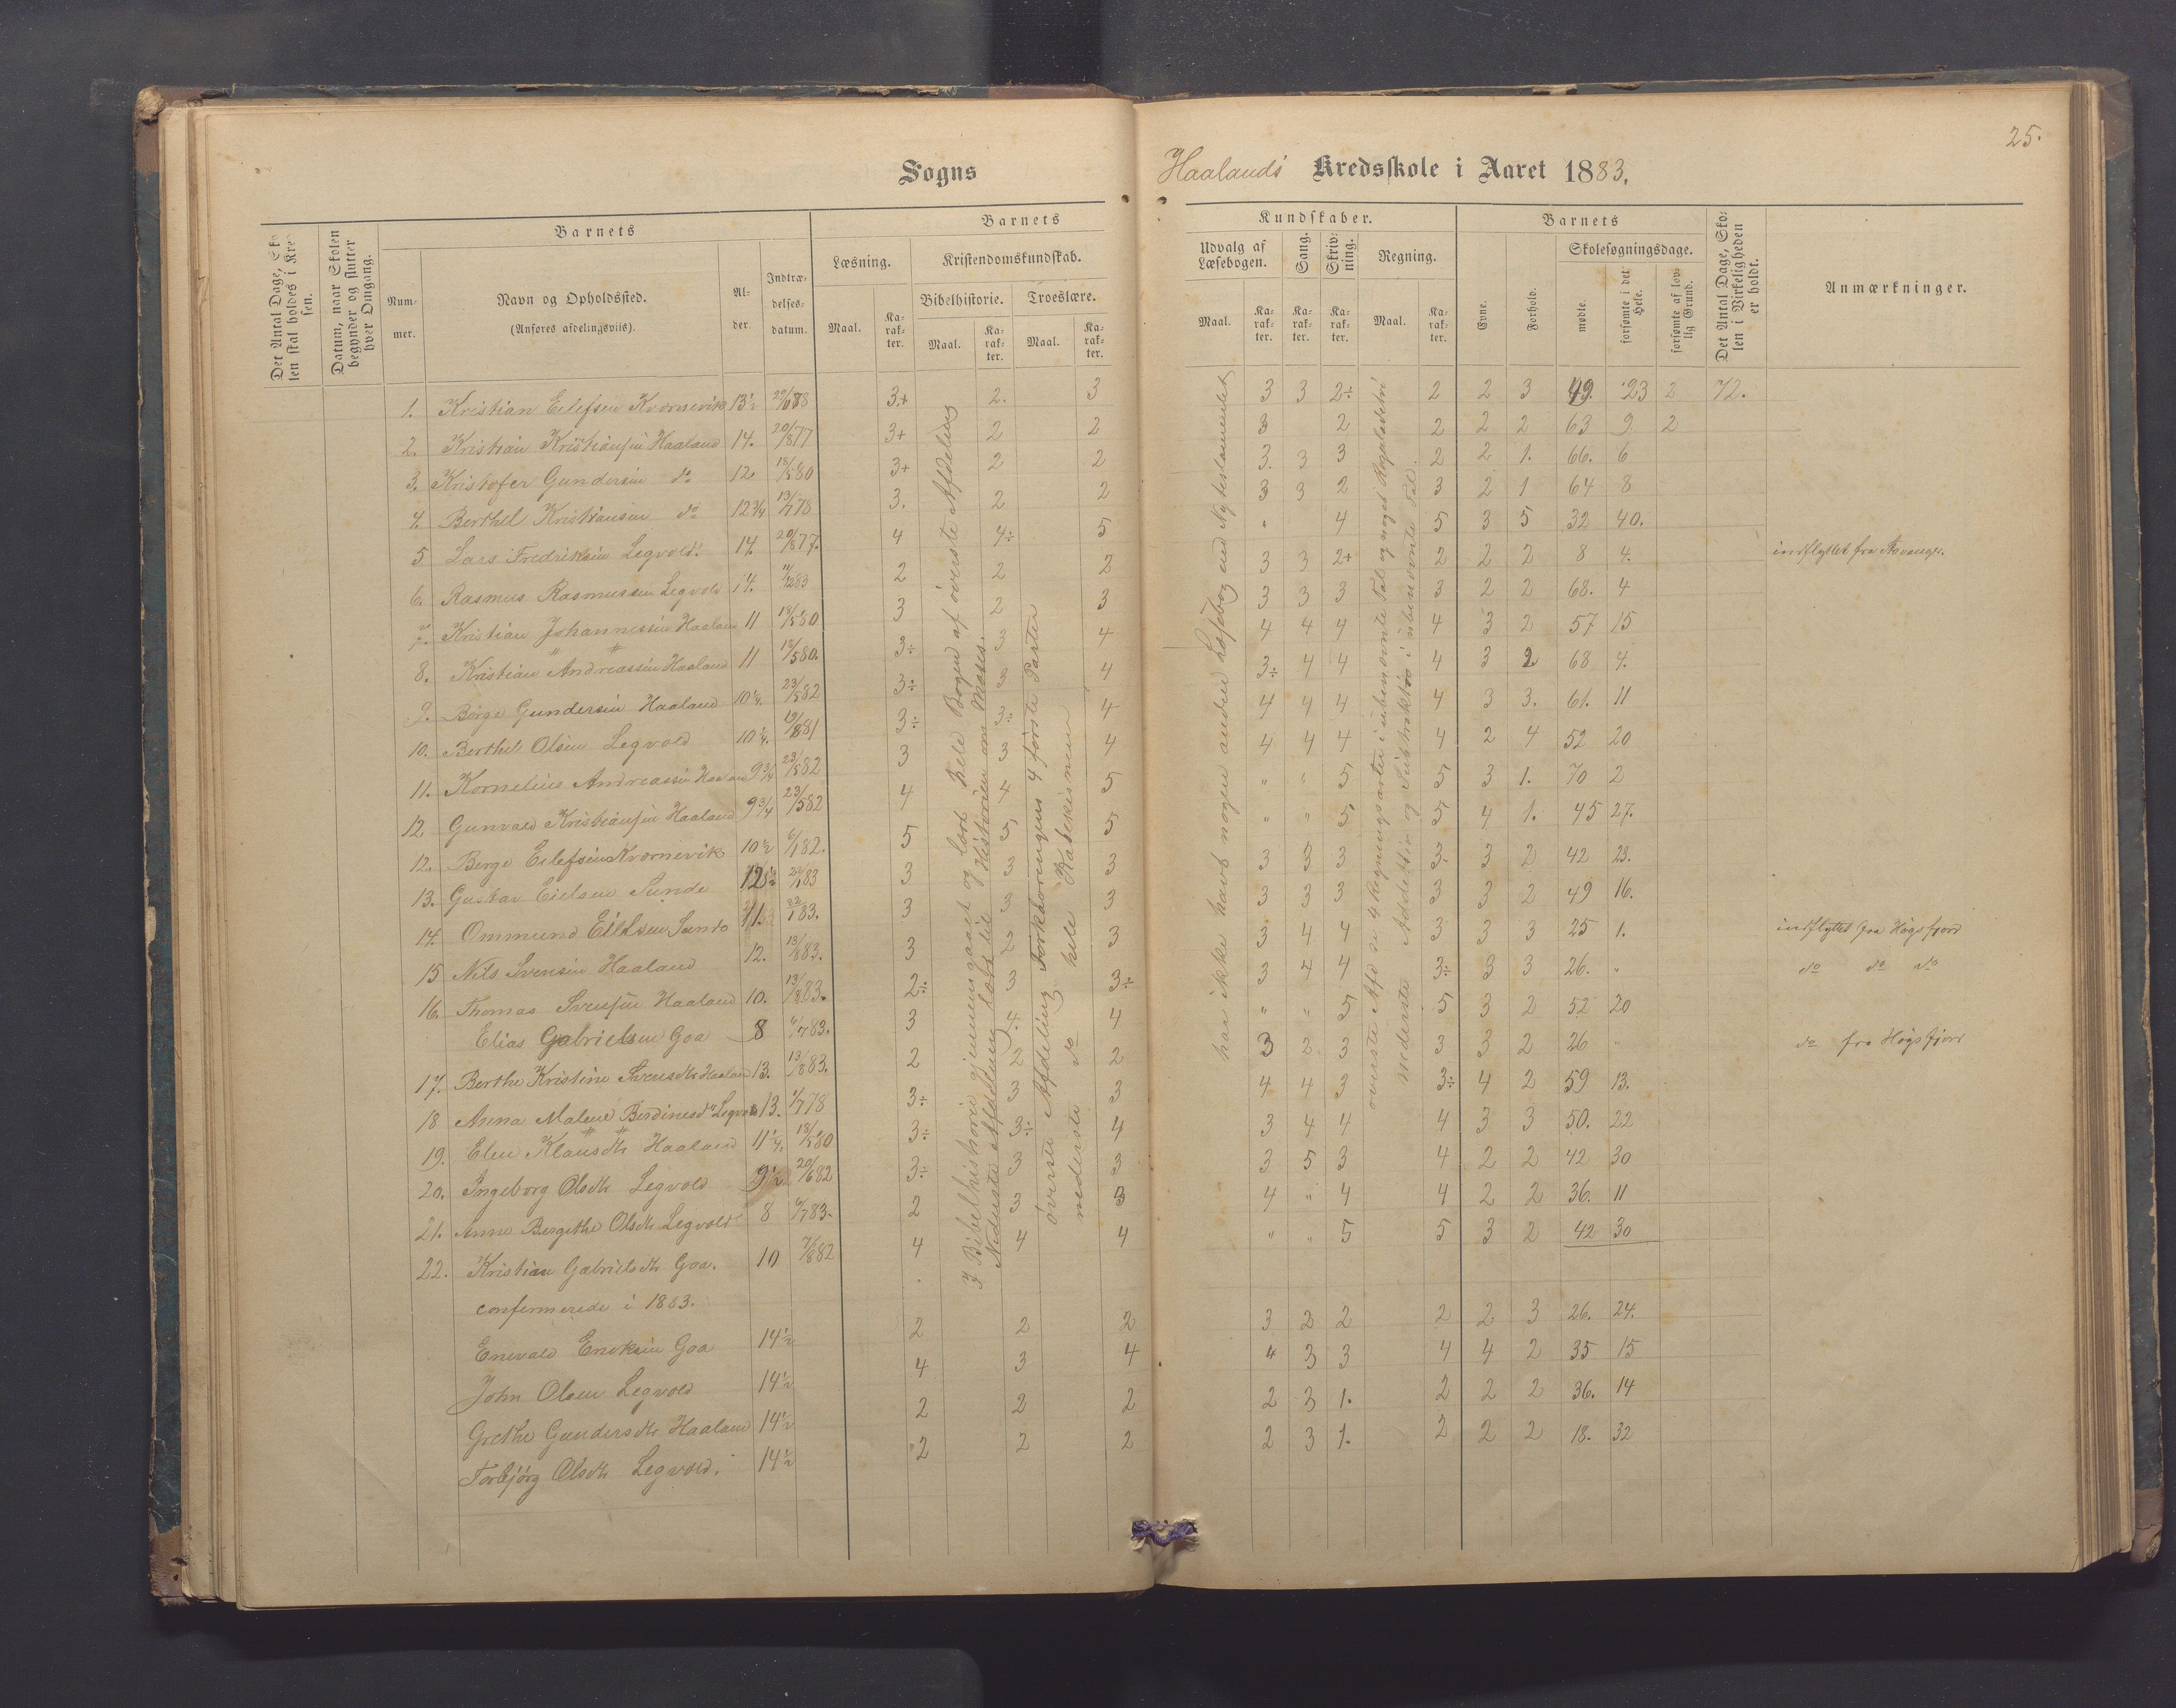 25.
Sogns Haalands Kredsskole i Aaret 1883.
Det Antal Dage, Skolen skal holdes i Kredsen.
Datum, naar Skolen begynder og slutter hver Omgang.
Barnets
Nummer.
Navn og Opholdssted.
(Anføres afdelingsviis).
Alder.
Indtrædelses-datum.
Barnets
Kundskaber.
Læsning.
Maal.
Karakter.
Kristendomskundskab.
Bibelhistorie.
Troeslære.
Maal.
Karakter.
Maal.
Karakter.
Udvalg af Læsebogen.
Maal.
Karakter.
Sang.
Karakter.
Skrivning.
Karakter.
Regning.
Maal.
Karakter.
Barnets
Evne.
Forhold.
Skolesøgningsdage.
mødte.
forsømte i det Hele.
forsømte af lovlig Grund.
Det Antal Dage, Skolen i Virkeligheden er holdt.
Anmærkninger.
1. Kristian Eilefsen Kvornevik 13½ 3+ 2. 3 3 3 2÷ 2 2 3 49. 23 2 72.
2. Kristian Kristiansen Haaland 14. 20/8 77 3+ 2 2 3 2 2 2 2 63 9 2
3. Kristofer Gundersen do 12 18/5 80 3+ 2 2 3. 3 3 2 2 1. 66. 6
4. Berthel Kristiansen do 12¾ 13/7 78 3. 2 2 3 3 2 3 2 1 64 8
5 Lars Fredriksen Legvold. 14. 20/8 77. 4 4÷ 5 " 4 5 3 5 32 40.
6. Rasmus Rasmussen Legvold 14. 2 2 2 3 3 2+ 2 2 2 8 4. indflyttet fra
7. Kristian Johannessen Haaland 11 18/5 80 3 2 3 3 3 3 3 2 2 68. 4
8. Kristian Andreassen Haaland 11 18/5 80. 3÷ 3 4 4 4 4 4 3 2 57 15
9. Børge Gundersen Haaland 10¼. 23/5 82 3÷ 3 4 3÷ 4 4 4 3 2 68 4.
10. Berthel Olsen Legvold 10¼. 19/8 81 3÷ 3÷ 4 4 4 4 4 3 3. 61. 11
11. Kornelius Andreassen Haaland 9¾ 23/5 82 3 3 4 4 4 4 4 2 4 52 20
12 Gunvald Kristiansen Haaland 9¾ 23/5 82 4 4 5 " " 5 5 3 1. 70 2
12. Børge Eilefsen Kvornevik 10½ 6/1 82. 5 5 5 " " 5, 5 4 1. 45 27.
13. Gustav Eielsen Sunde 3 3 3 3 3 3 3 3 2 42 23.
14. Ommund Eielsen Sunde 11. 22/1 83. 3 3 3 3 3 3 3 3 2 49 16.
15 Nils Svensen Haaland 12. 13/8 83. 3 2 3 3 4 4 3 3 3 25 1. indflyttet fra Høgsfjord
16. Thomas Svensen Haaland 10. 13/8 83. 2÷ 3 3÷ 3 4 4 3÷ 3 3 26. " do do do
Elias Gabrielsen Goa 8 6/7 83. 3 4÷ 4 " " 5 5 3 2 52 20
17. Berthe Kristine Svensdtr Haaland 13. 13/8 83. 2 2 2 3 2 3 3 3 2 26 " do fra Høgsfjord
18 Anna Malene Berdinesdtr Legvold 13. 1/7 78 3÷ 3 3 4 4 3 3÷ 4 2 59 13.
19. Elen Klausdtr Haaland 11¼. 18/5 80 3÷ 3÷ 4 3 4 4 4 3 3 50. 22
20. Ingeborg Olsdtr Legvold 9½ 20/6 82 3÷ 3 3 3 5 3 4 2 2 42 30
21. Anne Bergithe Olsdtr Legvold 8 6/7 83. 2 3 3 4 " 4 4 2 2 36. 11
22. Kristian Gabrielsdtr Goa. 10 7/8 82 4 4 4 " " 5 5 3 2 42 30
confermerede i 1883.
Enevald Eneksen Goa 14½ 2 2 2 3 2 2 2 2 3 26. 24.
John Olsen Legvold 14½ 4 3 4 4 3 3 4 4 2 35 15
Grethe Gundersdtr Haaland 14½ 2 2 2 2 3 1. 2 2 2 36. 14
Torbjørg Olsdtr Legvold. 14½ 2 2 2 2 3 1. 2 2 2 18. 32
I Bibelhistorie gjennemgaaet og lært hele Bogen af øverste Afdeling
Nederste Afdeling læst til Historien om Moses.
øverste Afdeling Forklaringens 4 første Parter
nederste do hele Katekismen
har ikke havt nogen anden Læsebog end Nytestamentet
øverste Afd de 4 Regningsarter i ubenævnte Tal og noget Regaladetri
nederste Addition og Subtraktion i ubenævnte Tal.